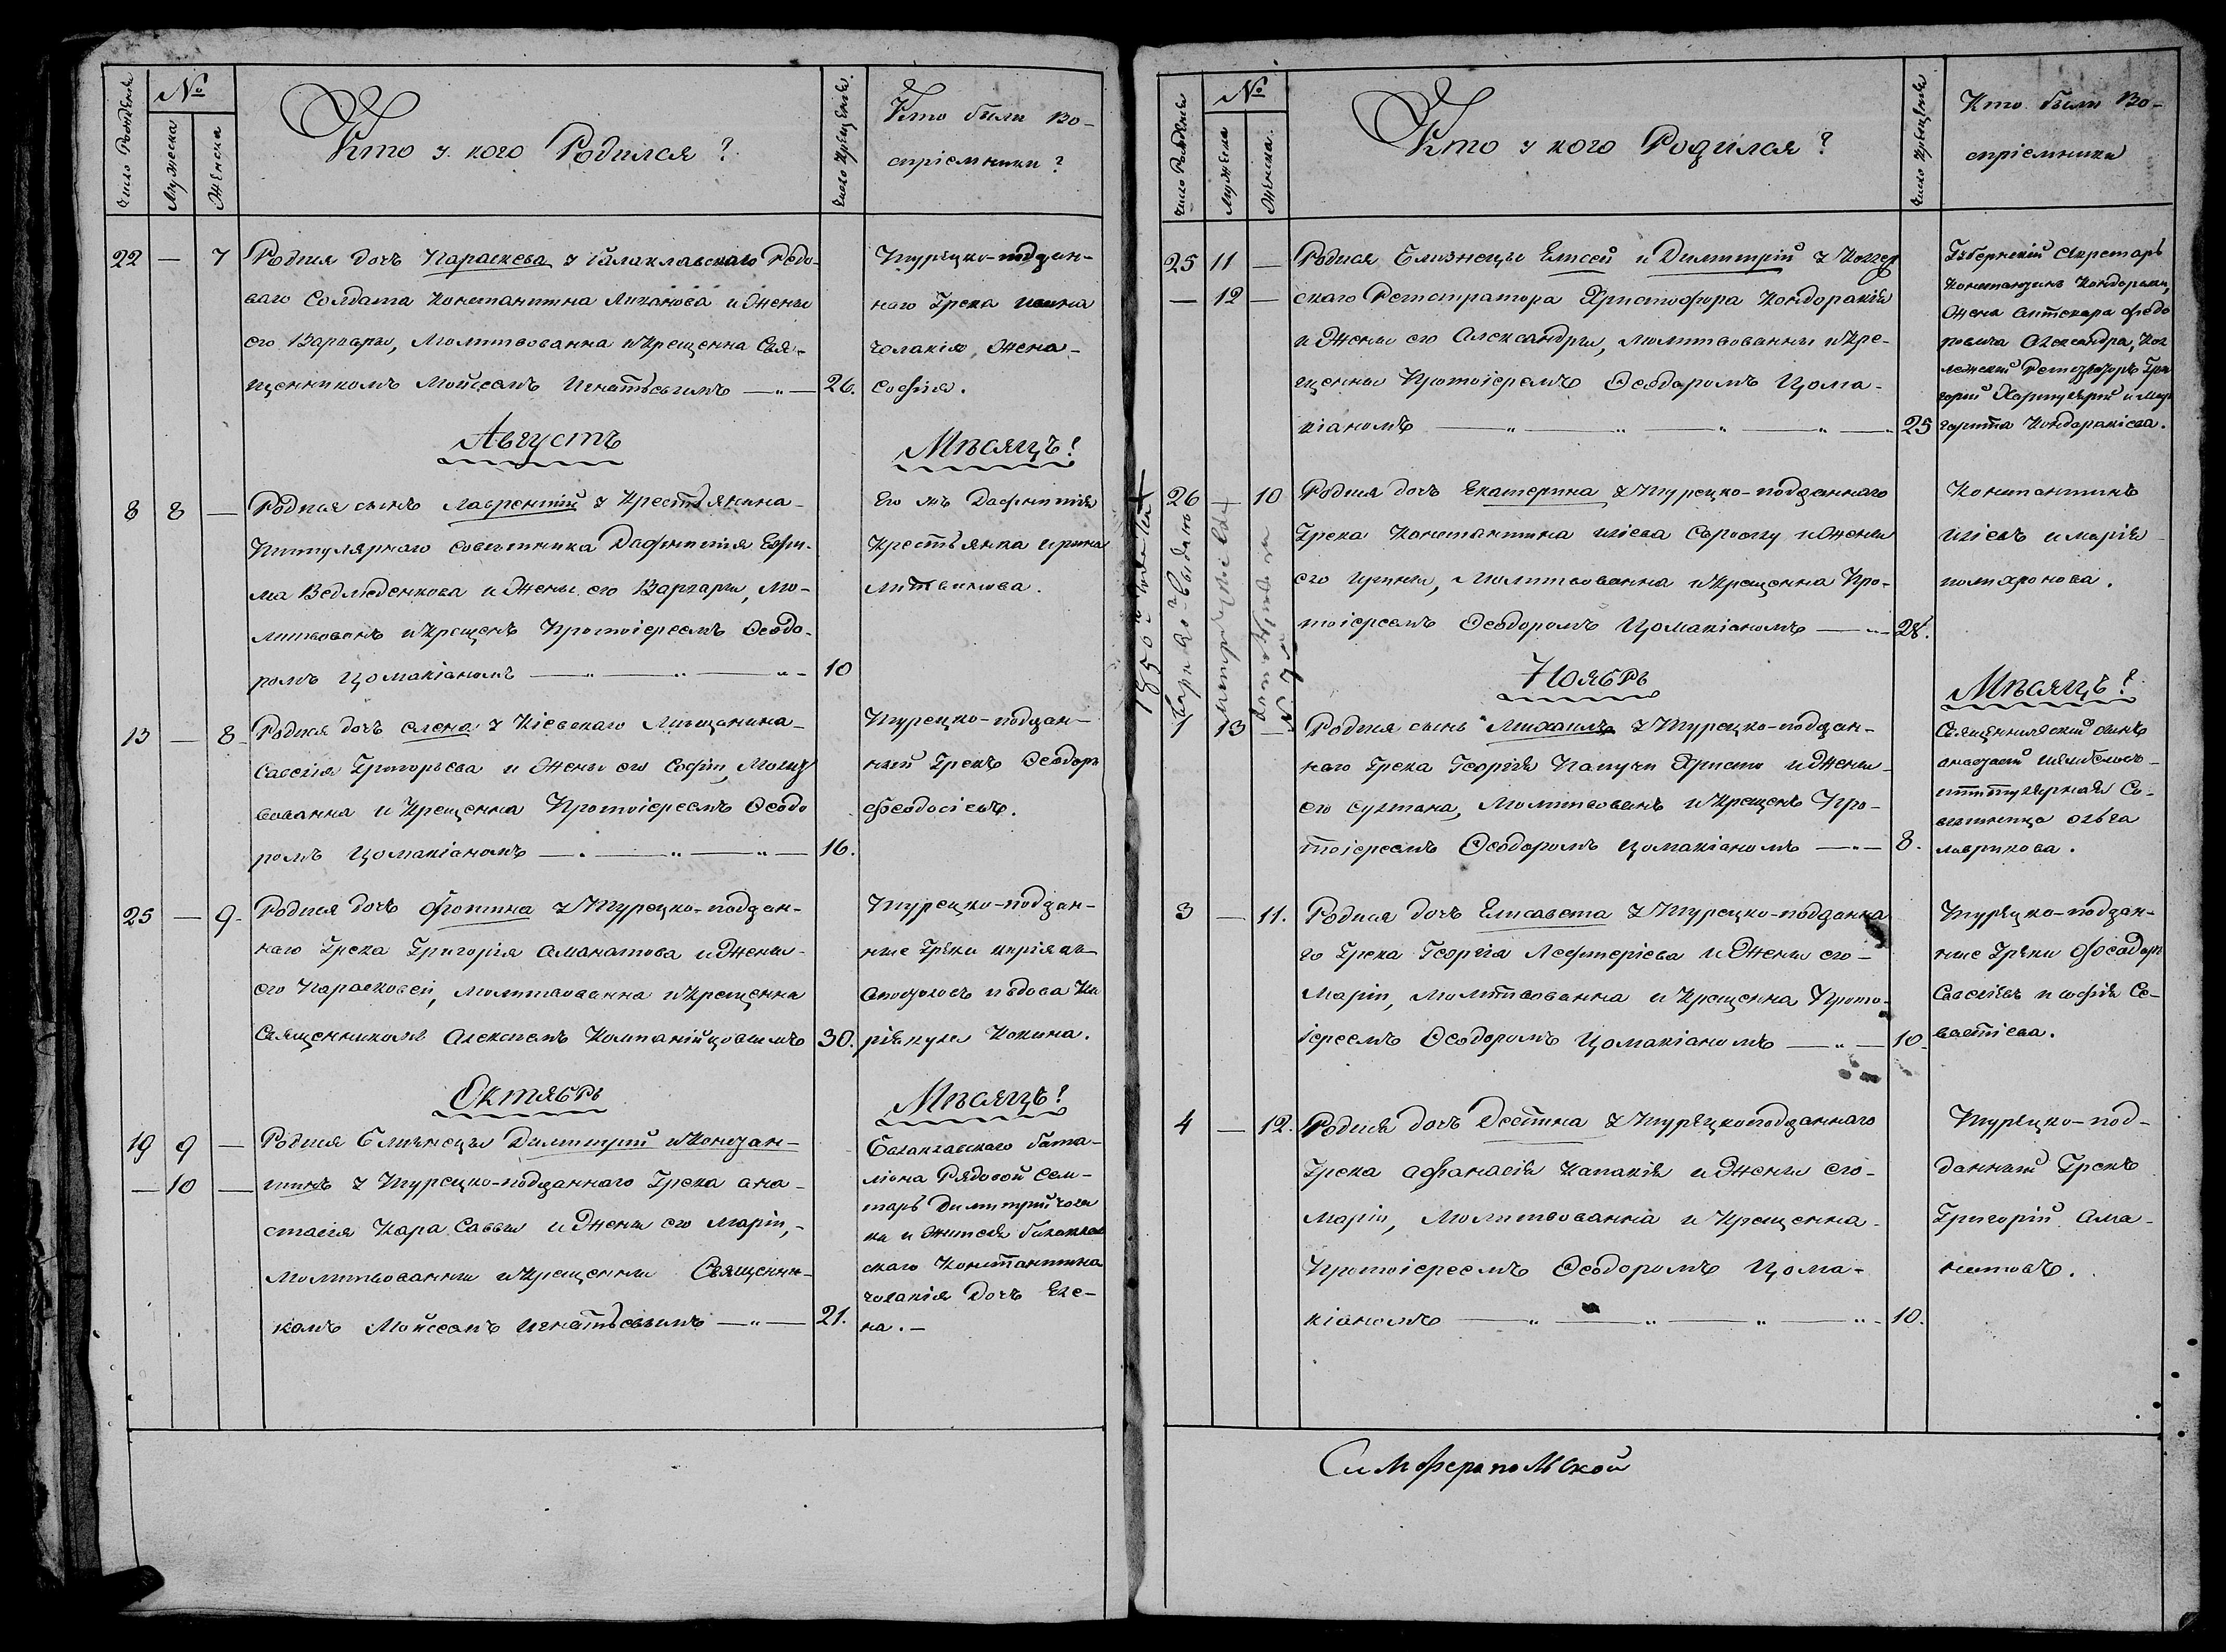 Число Рождения
№
Мужеска
Женска
Кто у кого Родился?
Число Крещения.
Кто были Во-
спріемники?
22 — 7 Родися дочь Параскева у Балаклавскаго Редо-
ваго Солдата Константина Лиганова и Жены
его Варвары, Молитвованна и Крещенна Свя-
щенникомъ Моисеемъ Игнатьевымъ — „ — 26.
Турецко-поддан-
наго Грека
Чолакію, Жена
Софія.
Августъ Мѣсяцъ!
8 8 — Родися сынъ Лаврентій у Крестьянина
Титулярнаго Советника Дафинтія Ефи-
ма Ведмеденкова и Жены его Варвары, Мо-
литвованъ и Крещенъ Протоіереемъ Ѳеодо-
ромъ Цомакіаномъ — „ — „ — 10
Его жъ Дафинтія
Крестьянка Ирина
Литвинова.
13 — 8 Родися дочь Елена у Кіевскаго Мещанина
Савелія Григорьева и Жены его Софіи, Молит
вованна и Крещенна Протоіереемъ Ѳеодо
ромъ Цомакіаномъ — „ — „ — 16.
Турецко-поддан-
ный Грекъ Ѳеодоръ
Феодосіевъ.
25 — 9. Родися дочь Фотина у Турецко-поддан-
наго Грека Григорія Аманатова и Жены
его Парасковеи, Молитвованна и Крещенна
Священникомъ Алексіемъ Компанійцовымъ 30.
Турецко-поддан-
ные Греки Киріякъ
Апостоловъ и вдова Ки
ріякула Кокина.
Октябрь Мѣсяцъ!
19 9 — Родися Близнецы Димитрій и Констан-
— 10 — тинъ у Турецко-подданнаго Грека Ана-
стасія Кара Саввы и Жены его Маріи,
Молитвованны и Крещенны Священни-
комъ Моисеемъ Игнатьевымъ — „ — 21.
Балаклавскаго Бата-
ліона Рядовой Сем-
тарь Димитрій Чола
ки и Жителя Балаклав
скаго Константина
Чолакія Дочь Еле-
на. —
Число Рожденія
№
Мужеска
Женска.
Кто у кого Родился?
Число Крещенія
Кто были Во-
спріемники
25 11 — Родися Близнецы Елисей и Димитрій у Коллеж
— 12 — скаго Регистратора Христофора Кондоракія
и Жены его Александры, Молитвованны и Кре-
щенны Протоіереемъ Ѳеодоромъ Цома-
кіаномъ — „ — „ — „ — „ — 25
Губернскій Секретарь
Константинъ Кондораки,
Жена Аптекара Федо
ровича Александра, Кол
лежскій Регистраторъ Гри
горій Харитуларій и Мар
гарита Кондоракіева.
26 — 10 Родися дочь Екатерина у Турецко-подданнаго
Грека Константина Иліева Сароглу и Жены
его Ирины, Молитвованна и Крещенна Про-
тоіереемъ Ѳеодоромъ Цомакіаномъ — „ — 28.
Константинъ
Иліевъ и Марія
Полихронова.
Ноябрь Мѣсяцъ!
1 13 — Родися сынъ Михаилъ у Турецко-поддан-
наго Грека Георгія Папучи Христо и Жены
его Султана, Молитвованъ и Крещенъ Про-
тоіереемъ Ѳеодоромъ Цомакіаномъ — „ — 8.
Священнический сынъ
Титулярная Со-
ветница Ольга
Лаврикова.
3 — 11. Родися дочь Елисавета у Турецко-подданна
го Грека Георгія Лефтеріева и Жены его
Маріи, Молитвованна и Крещенна Прото-
іереемъ Ѳеодоромъ Цомакіаномъ — „ — 10.
Турецко-поддан-
ные Греки Феодоръ
Савеліевъ и Софія Се-
вастіева.
4 — 12. Родися дочь Деспина у Турецкоподданнаго
Грека Афанасія Капакія и Жены его
Маріи, Молитвованна и Крещенна
Протоіереемъ Ѳеодоромъ Цома-
кіаномъ — „ — „ — „ — „ — 10.
Турецко-под-
данный Грекъ
Григорій Ама-
натовъ.
Симферопольской